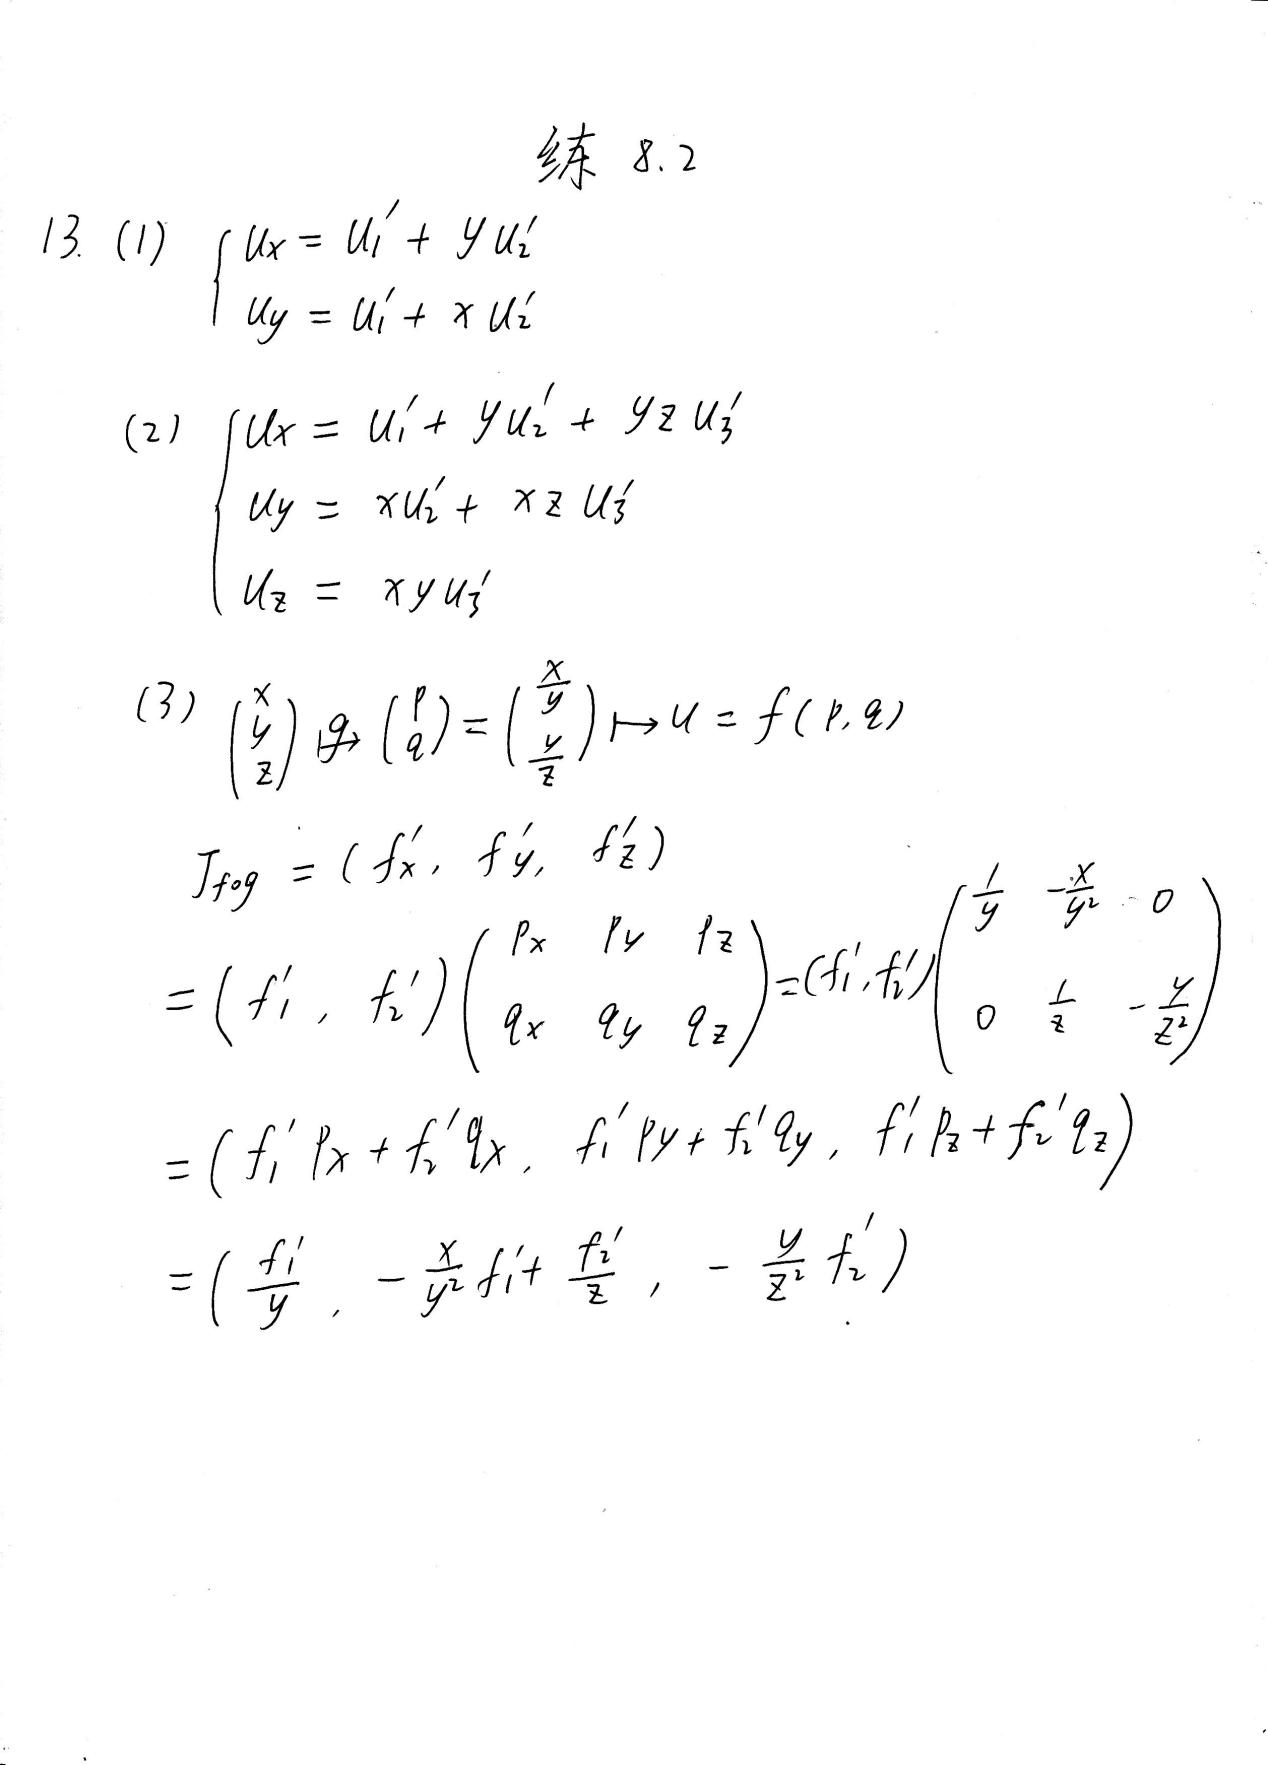 练 8.2
13. (1) { Ux = U₁' + y U₂'
Uy = U₁' + x U₂'
(2) { Ux = U₁' + y U₂' + yz U₃'
Uy = x U₂' + xz U₃'
Uz = xy U₃'
(3) (x y z) ↦g (p q) = (x/y y/z) ↦ u = f(p, q)
J_{f∘g} = (fx', fy', fz')
= (f₁', f₂') (px py pz qx qy qz) = (f₁', f₂') (1/y -x/y² 0 0 1/z -y/z²)
= (f₁' px + f₂' qx, f₁' py + f₂' qy, f₁' pz + f₂' qz)
= (f₁'/y, -x/y² f₁' + f₂'/z, -y/z² f₂')